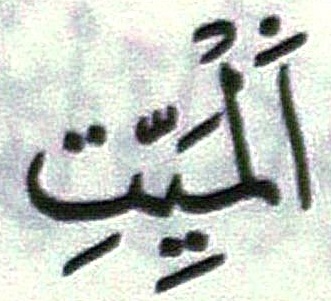 اَلْمَيِّتِ